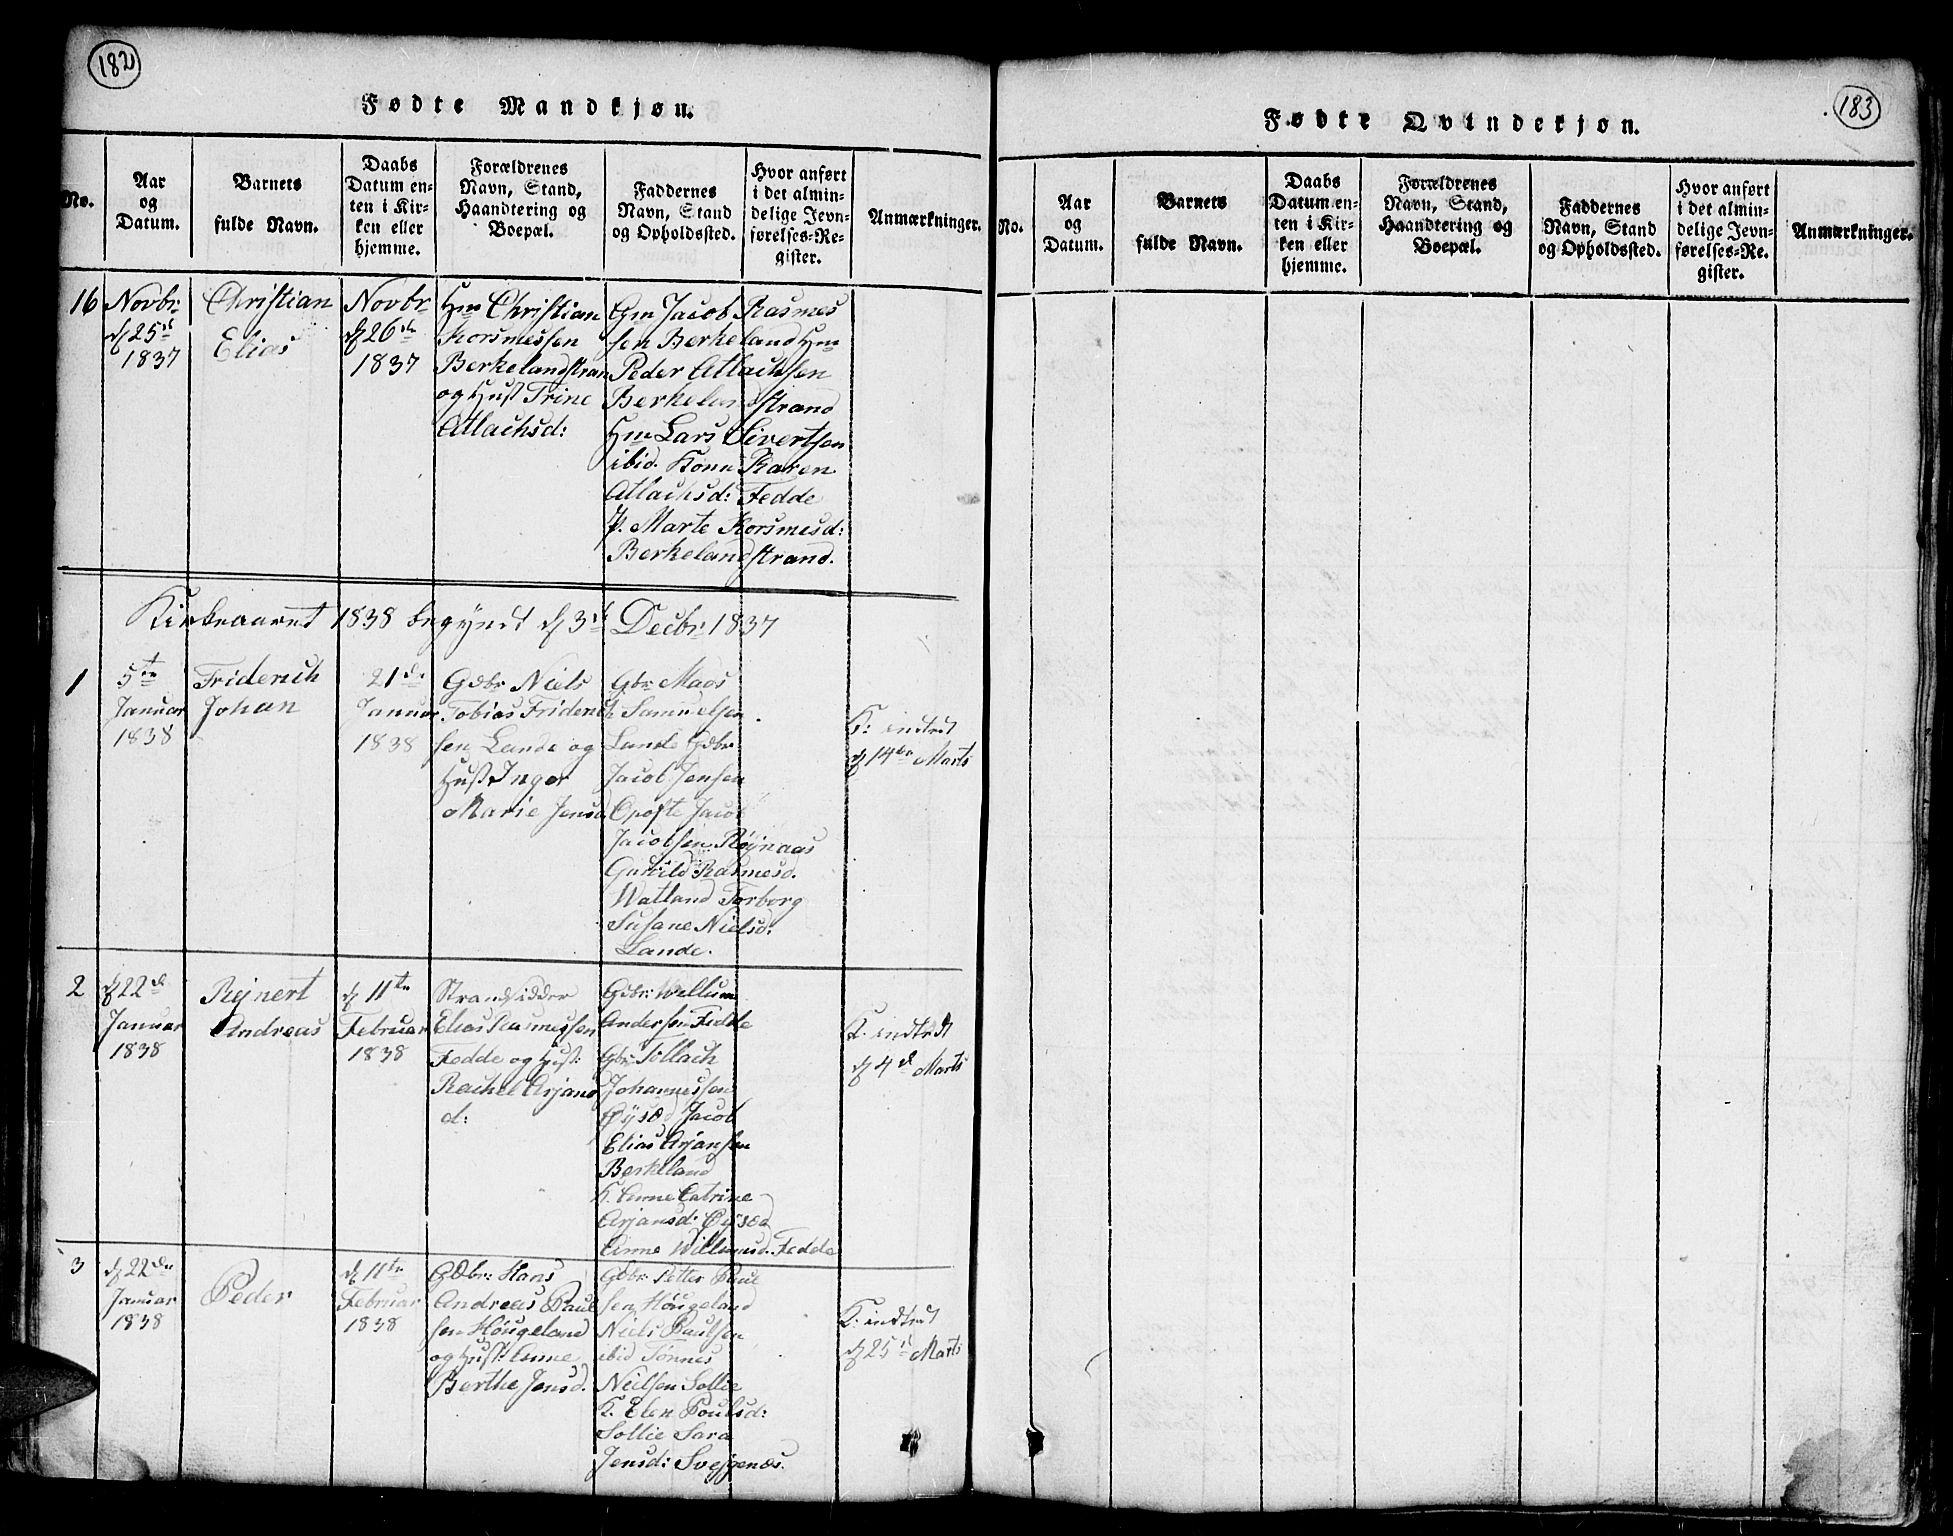 182
Fødte Mandkjøn.
No.
Aar
og
Datum.
Barnets
fulde Navn.
Daabs
Datum en-
ten i Kir-
ken eller
hjemme.
Forældrenes
Navn, Stand,
Haandtering og
Boepæl.
Faddernes
Navn, Stand
og Opholdssted.
Hvor anført
i det almin-
delige Jevn-
førelses-Re-
gister.
Anmærkninger.
16
Novbr:
d 25d
1837
Christian
Elias
Novbr
d 26de
1837
Hm Christian
Korsmessen
Berkelandstran
og Hust Trine
Atlachsd:
Gm Jacob Rasmes
sen Berkeland Hm
Peder Atlachsen
Berkelandstrand
Hm Lars Sivertsen
ibid. Konn Karen
Atlachsd: Fedde
P. Marte Korsmesd:
Berkelandstrand.
Kirkeaaret 1838 begyndt d 3d Decbr: 1837
1
5te
Januar
1838
Friderich
Johan
21de
Januar
1838
Gdbr Niels
Tobias Friderich
sen Lande og
Hust Inger
Marie Jensd
Gbr Mads
Samuelsen
Lande Gdbr
Jacob Jensen
Opofte Jacob
Jacobsen Røjnaas
Gunild Rasmesd.
Watland Torborg
Susane Nielsd:
Lande.
K: indtret
d 14de Marts
2
d 22de
Januar
1838
Rejnert
Andreas
d 11te
Februar
1838
Strandsidder
Elias Rasmessen
Fedde og Hust:
Rachel Arjans
d:
Gdbr: Wellum
Andersen Fedde
Gbr Tollach
Johannessen
Øysæd Jacob
Elias Arjansen
Berkeland
K. Anne Catrine
Arjansd: Øysæd
Anne Willumsd. Fedde
K. indtrdt
d 4d Marts
3
d 22de
Januar
1838
Peder
d 11te
Februar
1838
Gdbr: Hans
Andreas Paul
sen Høugeland
og Hust: Anne
Berthe Jensd.
Gdbr: Petter Paul
sen Høugeland
Niels Paulsen
ibid Tønnes
Neilsen Sollie
K. Elen Poulsd:
Sollie Sara
Jensd: Svejgenes.
K: indtret
d 25d Marts
183
Fødte Qvindekjøn.
No.
Aar
og
Datum.
Barnets
fulde Navn.
Daabs
Datum en-
ten i Kir-
ken eller
hjemme.
Forældrenes
Navn, Stand,
Haandtering og
Boepæl.
Faddernes
Navn, Stand
og Opholdssted.
Hvor anført
i det almin-
delige Jevn-
førelses-Re-
gister.
Anmærkninger.